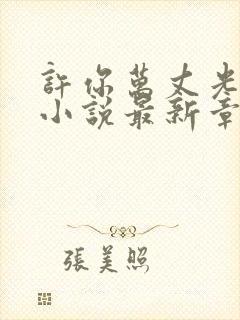 許你萬丈光
小說最新章
張美照